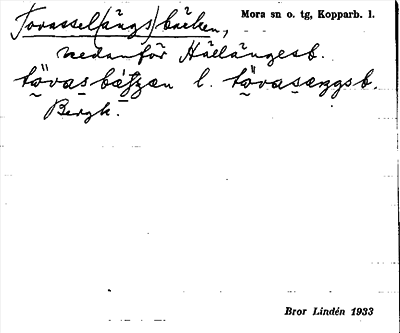 Torassel(ängs)bäcken,
Mora sn o. tg, Kopparb. l.
nedanför Hällängesb.
tövasbäʒʒæn l. tövasæŋgsb.
Bergk.
Bror Lindén 1933